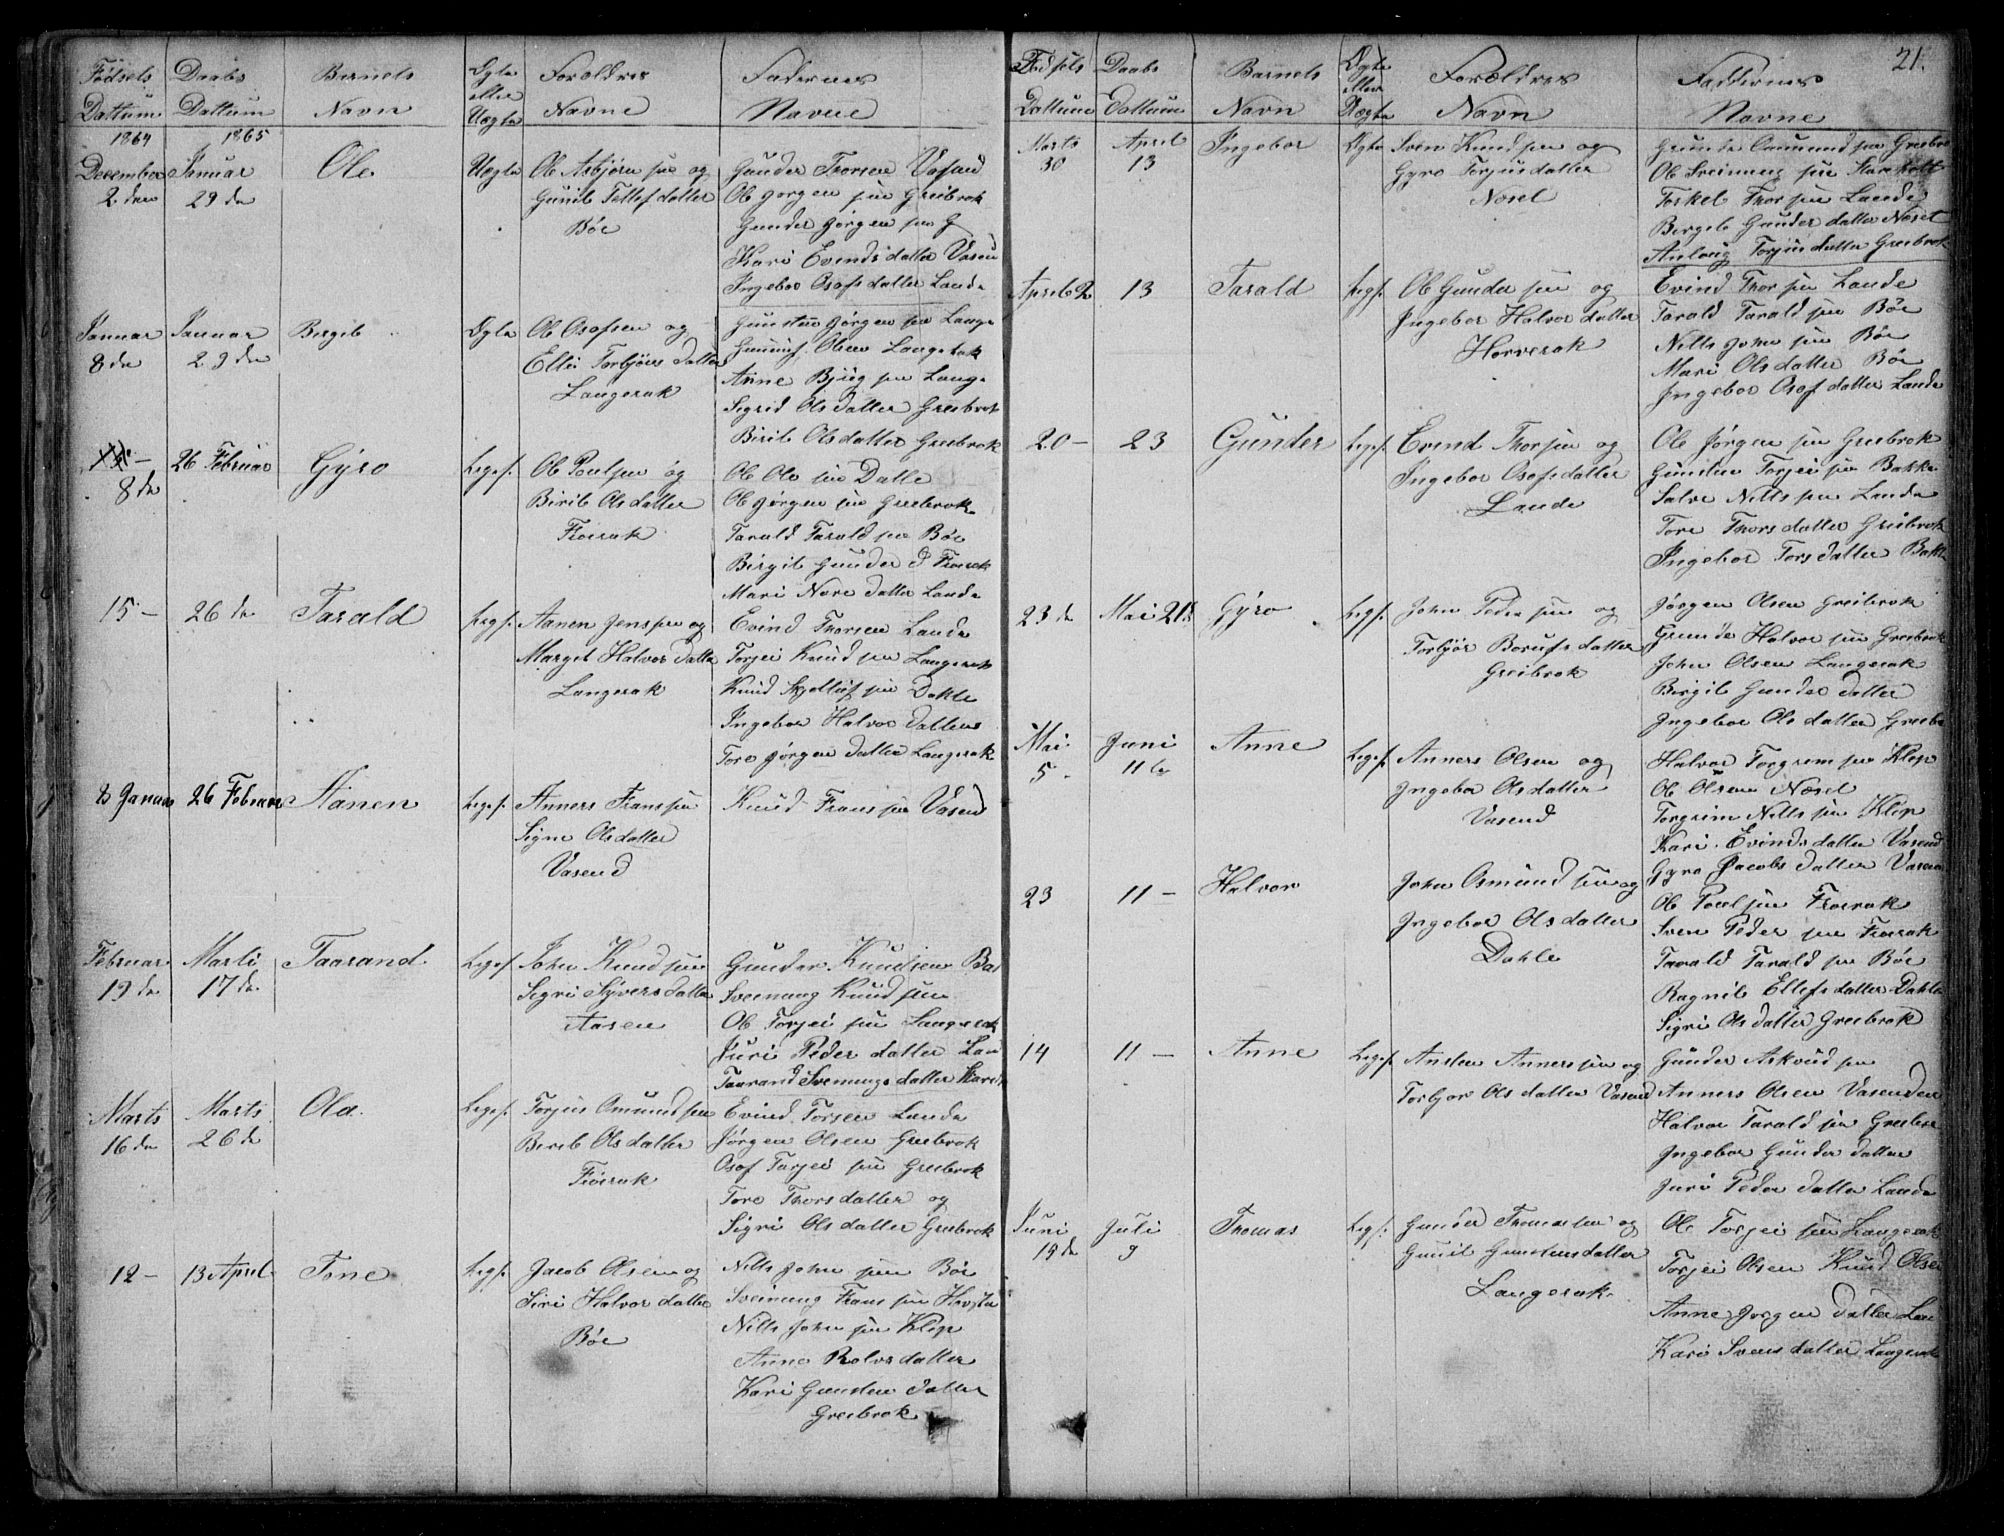 21.
Fødsels Dattum
Daabs Dattum
Barnets Navn
Ægte eller Uægte
Forældres Navne
Fadernes Navne
1864
1865
December 2 den
Januar 29 de
Ole
Uægte
Ole Asbjørn sen og
Gunil Tellef datter
Bøe
Gunder Thorsen Vasend
Ole Jørgen sen Greibrok
Gunder Jørgen sen G
Kari Evindsdatter Vasend
Ingebor Osofsdatter Lande
Januar 8 de
Januar 29 de
Birgit
Ægte
Ole Osofsen og
Elli Torbjørns datter
Langerak
Gunsten Jørgen sen Lange
Olsen Langerak
Anne Bjug sen Lange
Sigrid Olsdatter Greibrok
Birit Olsdatter Greibrok
8 de
26 Februar
Gÿro
Ligs.
Ole Poulsen og
Birit Olsdatter
Froirak
Ole Ole sen Dalle
Ole Jørgen sen Greibrok
Tarald Tarald sen Bøe
Birgit Gunder d Froirak
Mari Nore datter Lande
15 –
26 de
Tarald
Ligs.
Aanen Jenssen og
Marget Halvor datter
Langerak
Evind Thorsen Lande
Torjei Knud sen Langerak
Knud sen Dahle
Ingebor Halvor datter
Tore Jørgen datter Langerak
8 Januar
26 Februar
Aanen
Ligs.
Anners Franssen
Signe Olsdatter
Vasend
Knud Frans sen Vasend
Februar 19 de
Marti 17 de
Taarand
Ligs.
John Knud sen
Sigri Syvers datter
Aasen
Gunder Knudsen
Sveinung Knud sen
Ole Torjei sen Langerak
Juri Peder datter Lan
Taarand Svenungs datter
Marts 16 de
Marts 26 de
Ola
Ligs.
Torjus Omund sen
Birit Olsdatter
Froirak
Evind Torsen Lande
Jørgen Olsen Greibrok
Osof Tarjei sen Greibrok
Tore Thorsdatter og
Sigri Olsdatter Greibrok
12 –
13 April
Tone
Ligs.
Jacob Olsen og
Siri Halvor datter
Bøe
Nills John sen Bøe
Sveinung Frans sen
Nills John sen Klep
Anne Rolvsdatter
Kari Gunsten datter
Greibrok
Fødsels Dattum
Daabs Dattum
Barnets Navn
Ægte eller Uægte
Forældres Navn
Faddernes Navne
Marts 30
April 13
Ingebor
Ægte
Sven Knud sen og
Gyro Torjusdatter
Nosel
Grunde Omund sen Greibro
Ole Sveinung sen
Toskel Thor sen Lande
Birgit Gunder datter Nøsel
Anlaug Torjus datter Greibrok
April 2
13
Tarald
Ligs.
Ole Gunder sen og
Ingebor Halvor datter
Horverak
Evind Thor sen Lande
Tarald Tarald sen Bøe
Nills John sen Bøe
Mari Olsdatter Bøe
Ingebor Osof datter Lande
20 –
23
Gunder
Ligs.
Evind Thorsen og
Ingebor Osofsdatter
Lande
Ole Jørgen sen Greibrok
Gunsten Torjei sen Bakke
Salve Nills sen Lande
Tore Thorsdatter Greibrok
Ingebor Torsdatter Bakk
23 de
Mai 21 d
Gÿro
Ligs.
John Peder sen og
Torbjør Borufsdatter
Greibrok
Jørgen Olsen Greibrok
Grunde Halvor sen Greibrok
John Olsen Langerak
Birgit Gunder datter
Ingebor Olsdatter Greibr
Mai 5
Juni 11 te
Anne
Ligs.
Anners Olsen og
Ingebor Olsdatter
Vasend
Halvor Torgrim sen Klep
Ole Olsen Nøsel
Torgrim Nills sen Klep
Kari Evindsdatter Vasend
Gyro Jacobs datter Vasend
23
11 –
Halvor
John Osmund sen og
Ingebor Olsdatter
Dahle
Ole Poul sen Froirak
Sven Peder sen Froirak
Tarald Tarald sen Bøe
Ragnil Ellefsdatter Dahle
Sigri Olsdatter Greibrok
14
11 –
Anne
Ligs.
Ansten Anners sen og
Torbjor Olsdatter Vasend
Gunder Askvud sen
Anners Olsen Vasenden
Halvor Tarald sen Greibro
Ingebor Gunder datter
Juri Peder datter Lande
Juni 18 de
Juli 9
Thomas
Ligs.
Gunder Thomassen og
Gunil Gunstensdatter
Langerak
Ole Torjei sen Langerak
Torjei Olsen Knud Olsen
Anne Jørgen datter Lan
Kari Svens datter Langerak